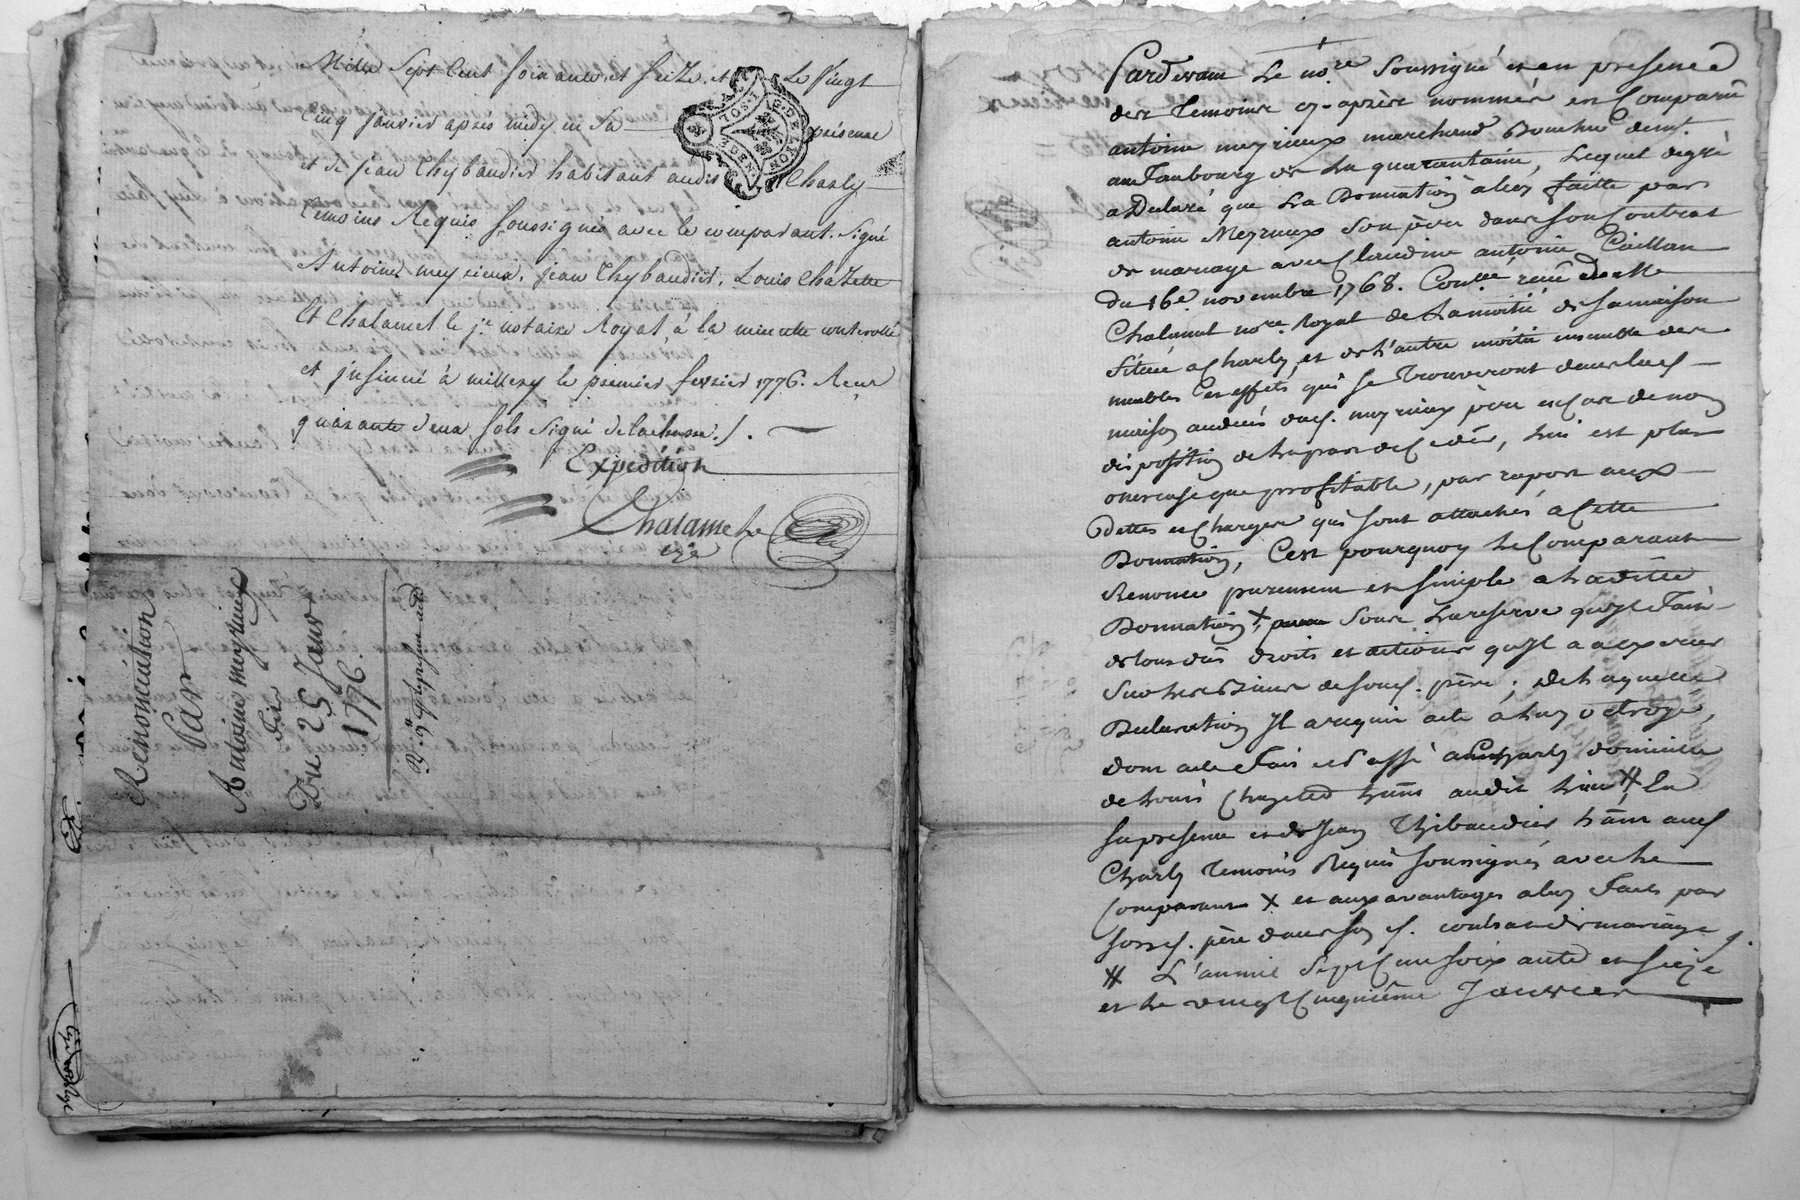 Mille Sept Cent soixante et seize, et Le Vingt
Cinq janvier après midy en sa présence
et de jean Thybaudier habitant audit Charly
témoins Requis soussignés avec le comparant. signé
Antoine meyrieux, jean Thybaudier, Louis Chazette
Et Chalamel le je. notaire Royal, à la minutte controllé
et insinué à millery le premier fevrier 1776. Reçu
quarante deux sols signé delachasse./.
Expédition
Chalamel
G.DE LYON
1.SOL
Renonciation
Par
Antoine meyrieux
du
Du 25 Janr.
1776.
Pardevant Le nore. Soussigné et en presence
des Temoins cy-après nommés est Comparu
antoine meyrieux marchand Boucher demt.
au Faubourg de La quarantaine, Lequel degré
a Declaré que La Donnation a luy faitte par
antoine Meyrieux son père dans son Contrat
de mariage avec Claudine antoine
du 16e. novembre 1768. reçu
Chalamel nore. Royal de La moitié de sa maison
Située a Charly, et de l'autre moitié ensemble des
meubles et effets qui se trouveront dans lad.
maison au decés dud. meyrieux père en Cas de non
disposition de la part de Ce der., lui est plus
onereuse que profitable, par raport aux
dettes et Charges qui sont attachés a Cette
Donnation, C'est pourquoy Le Comparant
Renonce purement et simple a la ditte
Donnation X sous La reserve qu'il Fait
de tous ses droits et actions qu'Il a a exercer
Sur Les Biens de soud. père; de Laquelle
Declaration Il a requis acte a luy octroyé,
dont acte Fait et Passé a Charly domicile
de Louis Chazette audit lieu # En
sa presence et de Jean Thibaudier aud.
Charly temoins Requis soussignés avec le
Comparant X et aux avantages a luy Faits par
sond. père dans son d. contrat de mariage
# L'année Sept Cent soixante et seize
et le vingt Cinquième Janvier